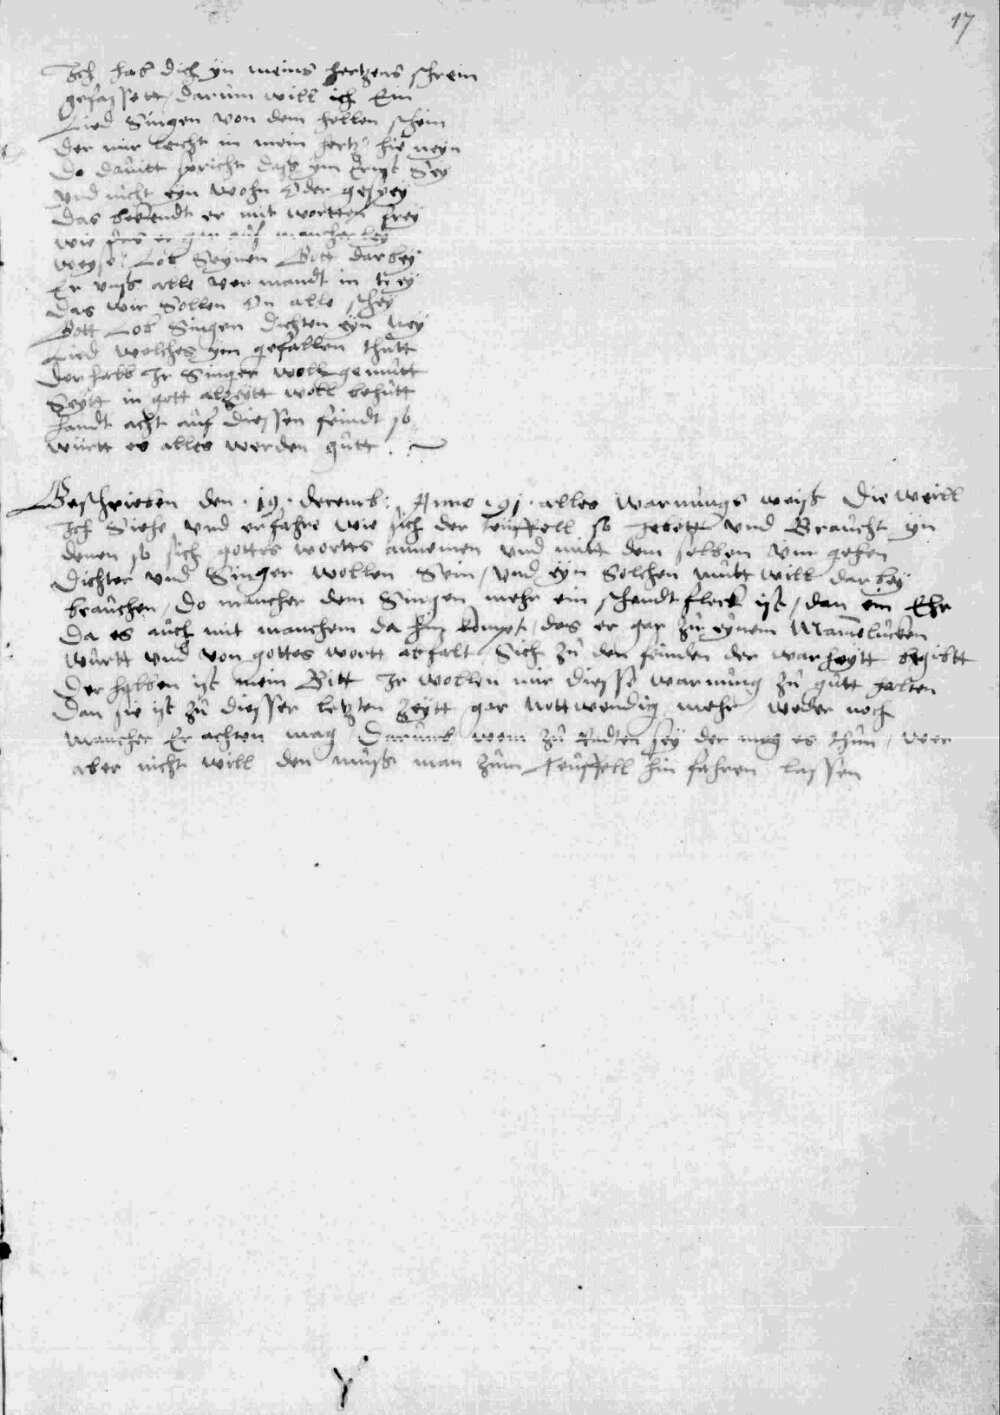 17
Ich hab dich yn meins hertzens schrein
gefassett / darum will ich Ein
Lied Singen von dem hellen schein
Der mir leicht in mein hertz hie neyn
Do Dauitt spricht das ym Ernst Sey
vnd nicht eyn wohn Oder gespey
Das bekendt er mit wortten frey
wie er gar auf mancherley
weyse / Lob Seynen Gott darbey
Er vnss alle vermandt in trey
Das wir Sollen On alle schey
Gott Lob Singen Dichten eyn Ney
Lied welches ym gefallen thutt
Der halb Ir Singer woll gemutt
Seytt in gott alzeytt woll behutt
handt acht auf Diessen feindt so
württ es alles werden gutt .
Geschrieben den . 19 . decemb: Anno 91 . alles warnungs weiß Die weill
Ich Siehe vnd erfahre wie sich der teuffell so setzt vnd Braucht yn
denen so sich gottes wortts annemen vnd mitt dem selben vm gehen
Dichter vnd Singer wollen Sein / vnd eyn Solchen mutt will darbey
brauchen / Do mancher dem Singen mehr ein schandt fleck ist / dan ein Ehr
Da es auch mit manchem da hin kompt / das er gar zu eynem Mamelucken
württ vnd von gottes wortt abfalt Sich zu den feinden der warheytt begibtt
Derhalben ist mein Bitt Ir wollen mir diesse warnung zu gutt halten
Dan sie ist zu dieser letzten Zeytt gar nottwendig mehr weder noch
mancher Er achten mag Darumb wem zu Radten sey der mag es thun / wer
aber nicht will den muß man zum teuffell hin fahren lassen